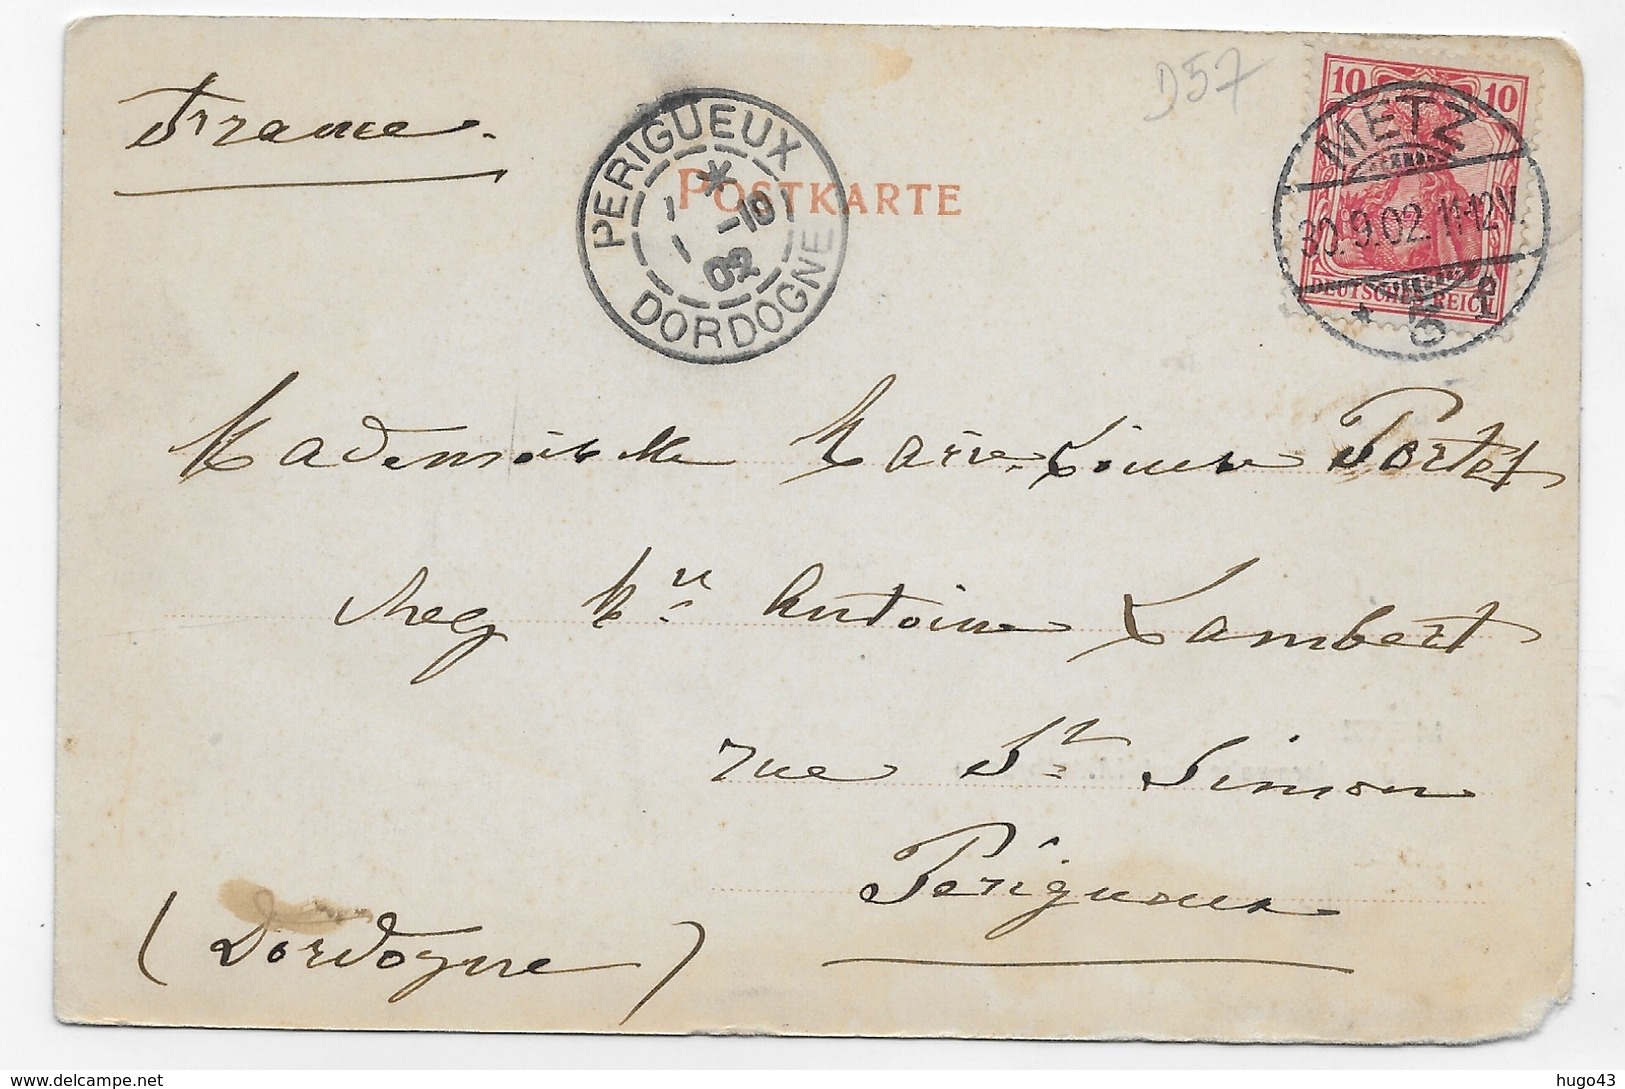 D57
France.
PERIGUEUX
*
1 -10
02
DORDOGNE
POSTKARTE
10 10
DEUTSCHES REICH
METZ
30.9.02.11-12V.
* 5
Mademoiselle Marie-Louise Portet
chez Mr. Antoine Lambert
rue St Simon
Périgueux
(Dordogne)
hugo43